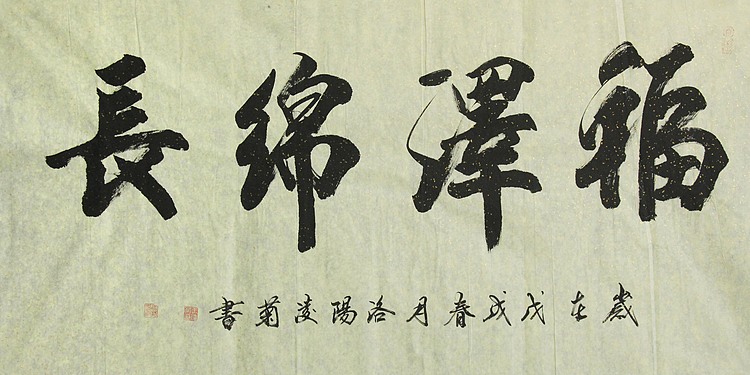 福澤綿長
歲在戊戌春月洛陽凌菊書